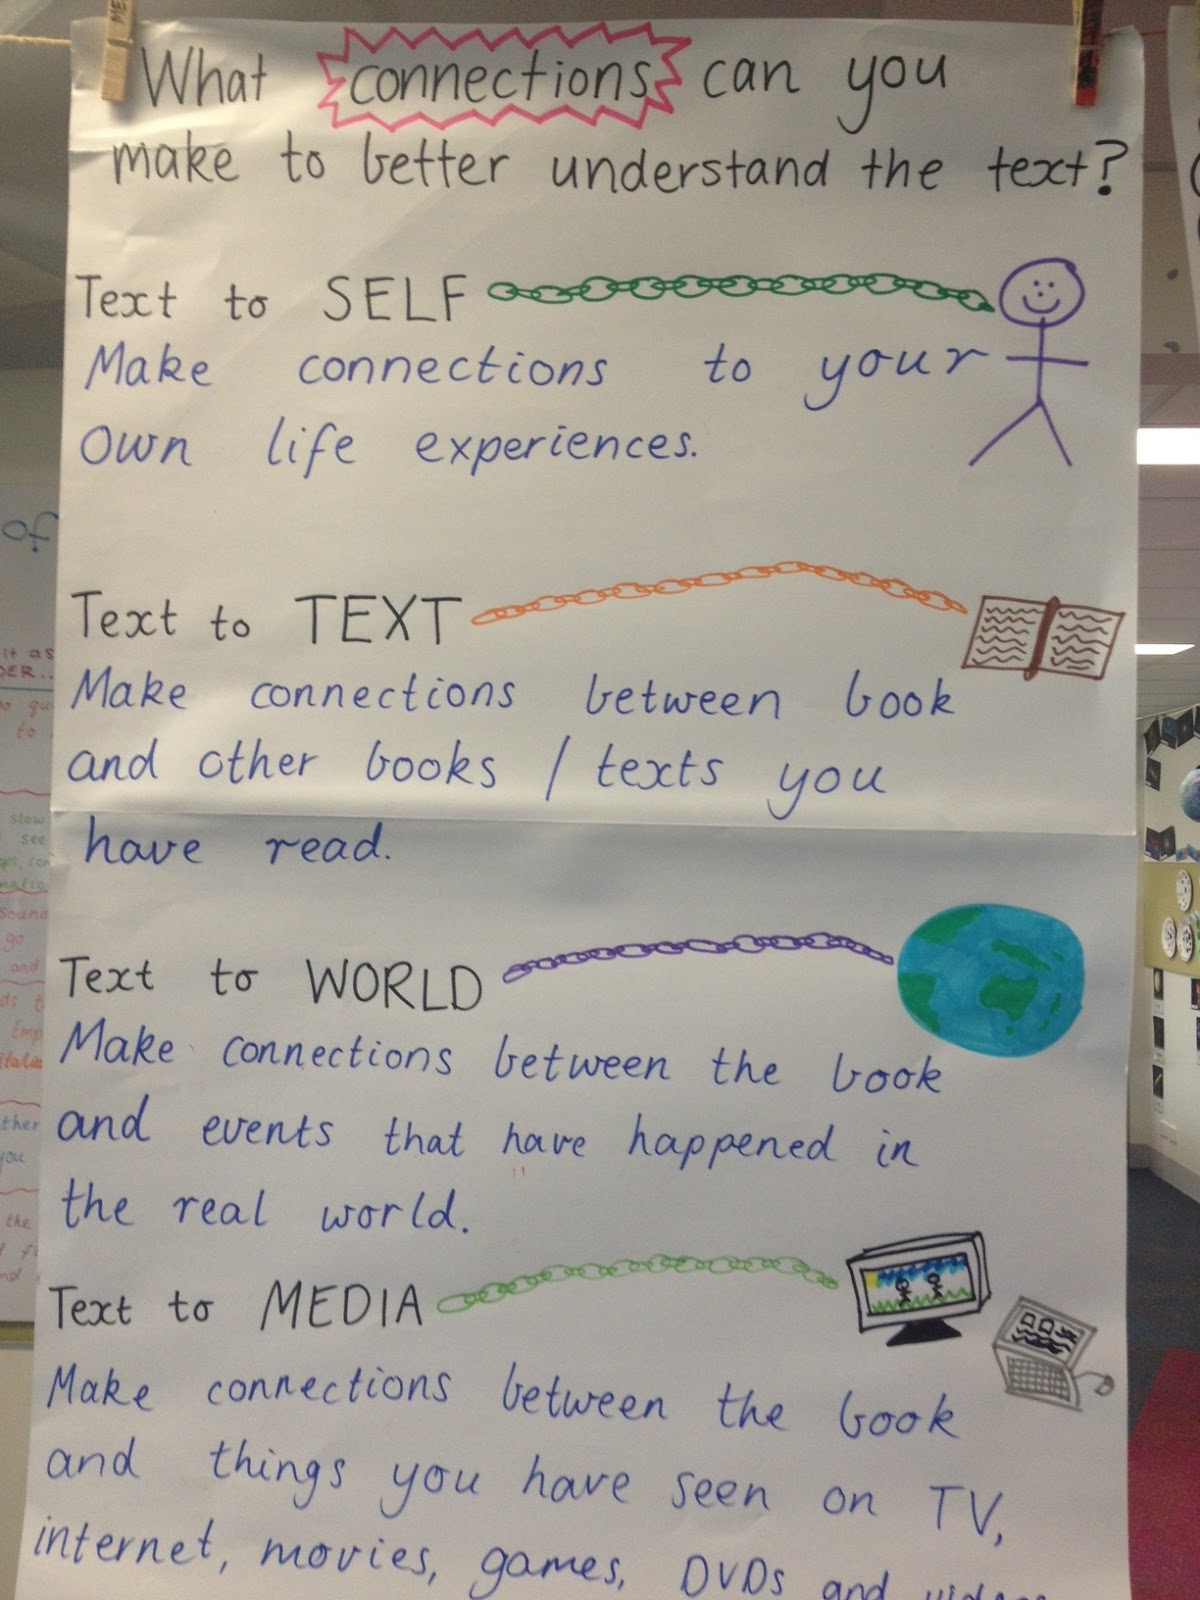 What connections can you
make to better understand the text?
Text to SELF
Make connections to your
own life experiences.
Text to TEXT
Make connections between book
and other books / texts you
have read.
Text to WORLD
Make connections between the book
and events that have happened in
the real world.
Text to MEDIA
Make connections between the book
and things you have seen on TV,
internet, movies, games, DVDs and videos
of
it as
DER...
to
slow
see
Sound
go
and
Emp
ther
you
the